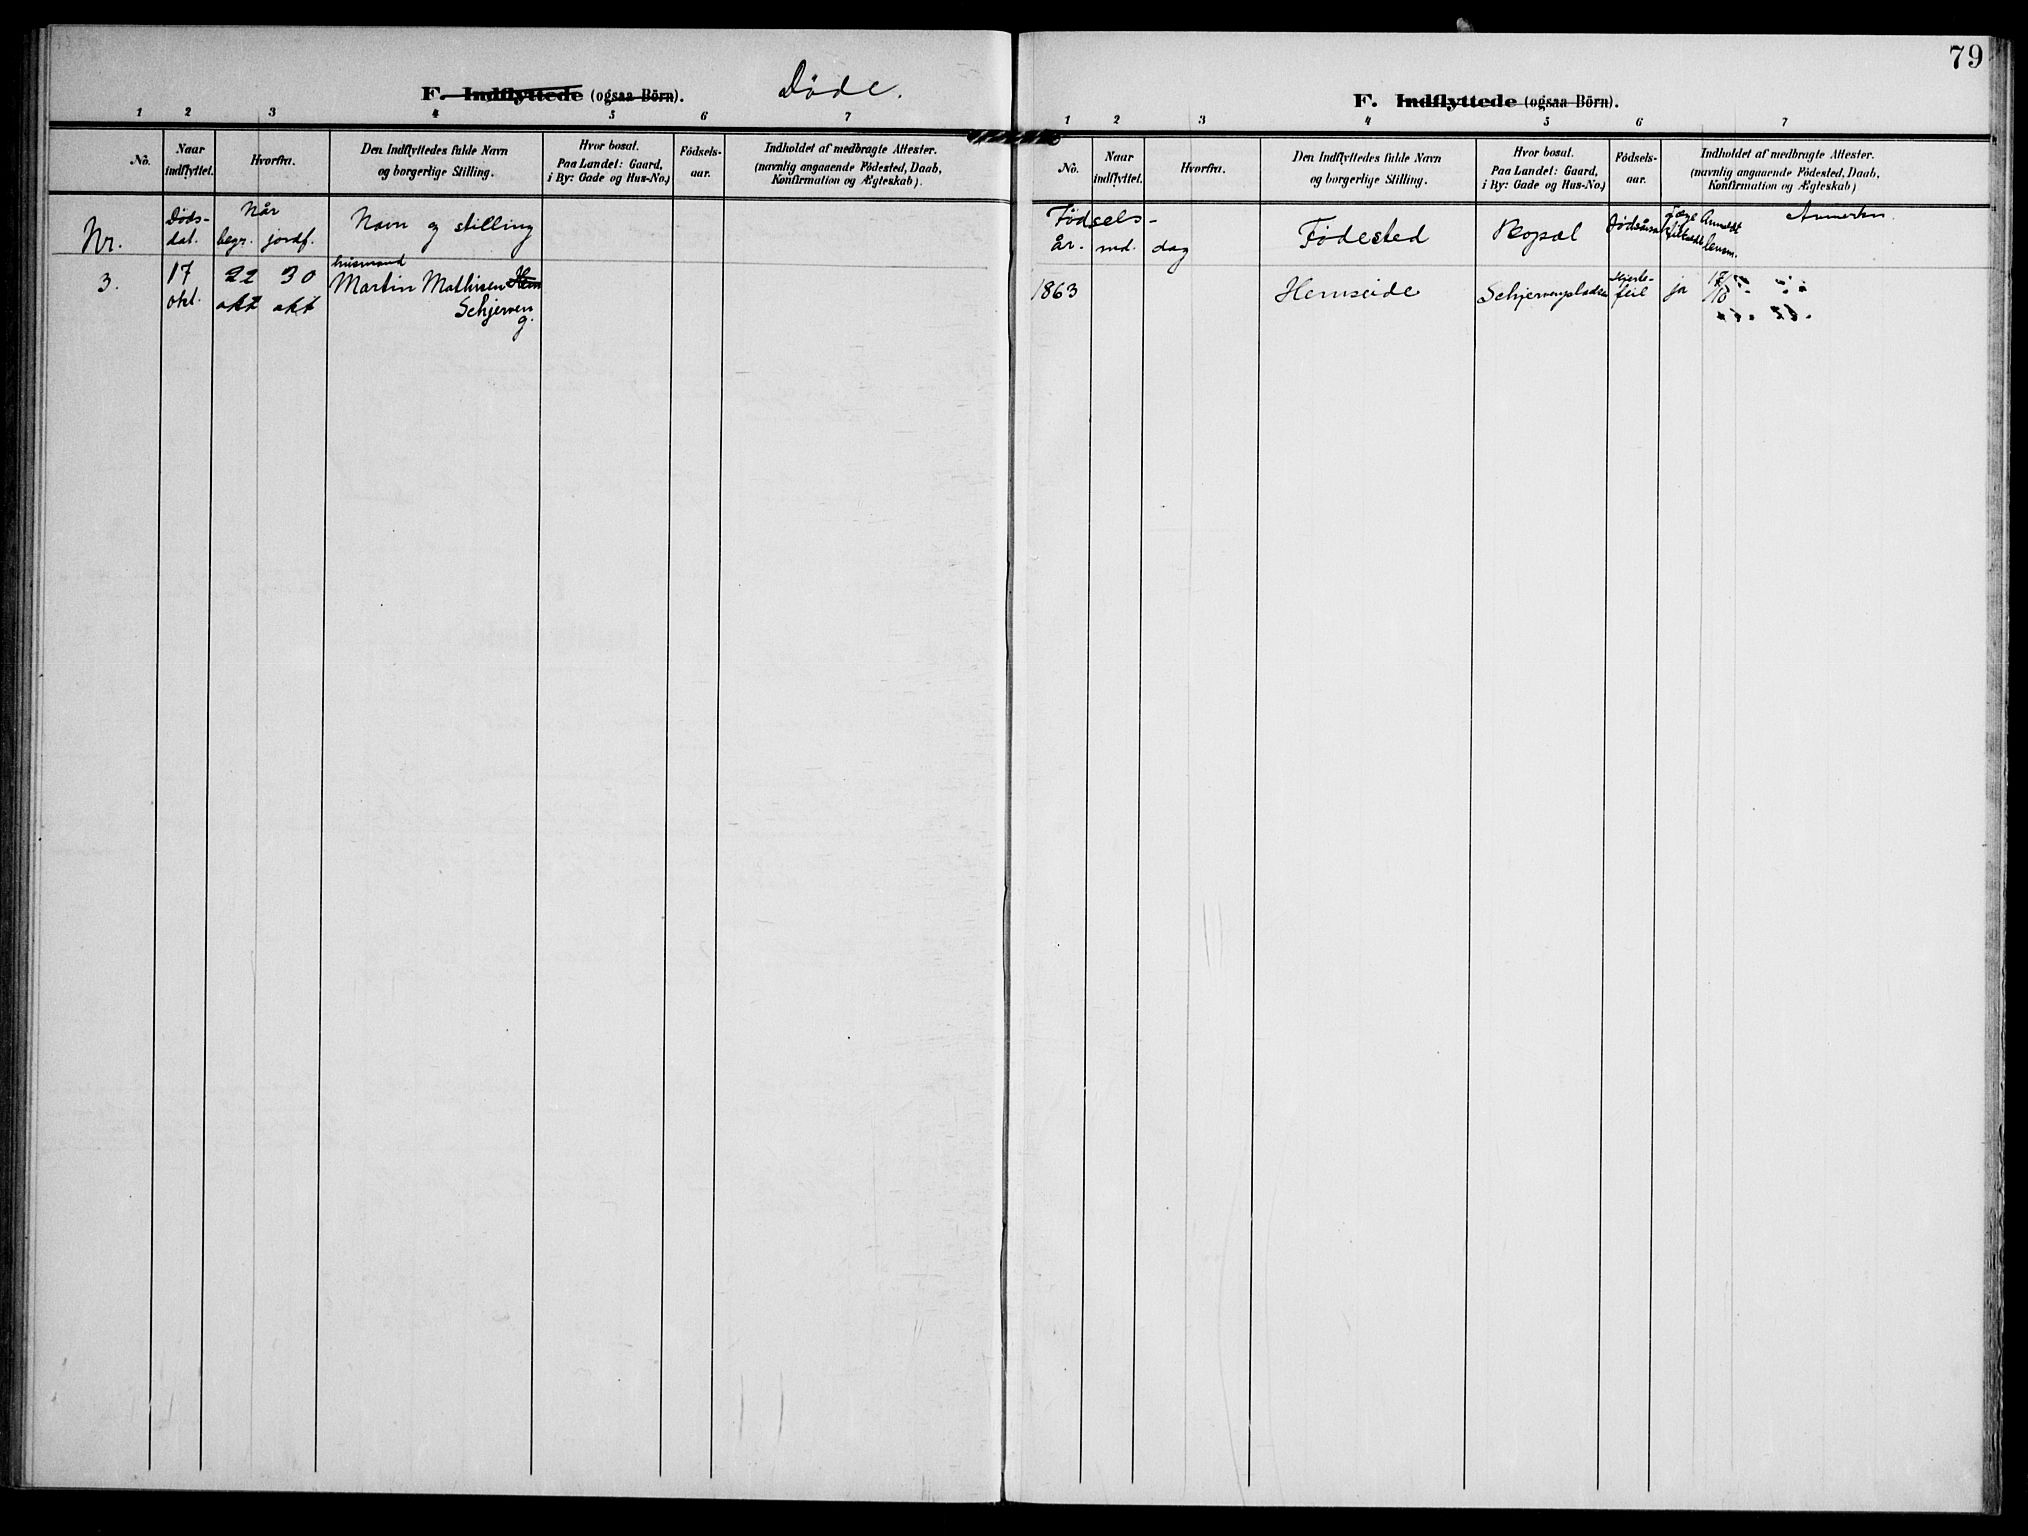 79
F. Indflyttede (ogsaa Börn). Døde.
1 2 3 4 5 6 7
No.
Naar indflyttet.
Hvorfra.
Den Indflyttedes fulde Navn
og borgerlige Stilling.
Hvor bosat.
Paa Landet: Gaard,
i By: Gade og Hus-No.)
Födsels-
aar.
Indholdet af medbragte Attester.
(navnlig angaaende Födested, Daab,
Konfirmation og Ægteskab).
Nr.
Døds-
dat.
Når
begr. jordf.
Navn og stilling
3.
17
okt.
22 30
okt okt
husmand
Martin Mathisen Hem
Schjerven
g.
F. Indflyttede (ogsaa Börn).
1 2 3 4 5 6 7
No.
Naar
indflyttet.
Hvorfra.
Den Indflyttedes fulde Navn
og borgerlige Stilling.
Hvor bosat.
Paa Landet: Gaard,
i By: Gade og Hus-No.)
Födsels-
aar.
Indholdet af medbragte Attester.
(navnlig angaaende Födested, Daab,
Konfirmation og Ægteskab)
Fødsels-
år. md. dag
Fødested
Bopæl
Anmeldt
lensm.
1863
Hemseide
Hjerte-
feil
ja
17/10